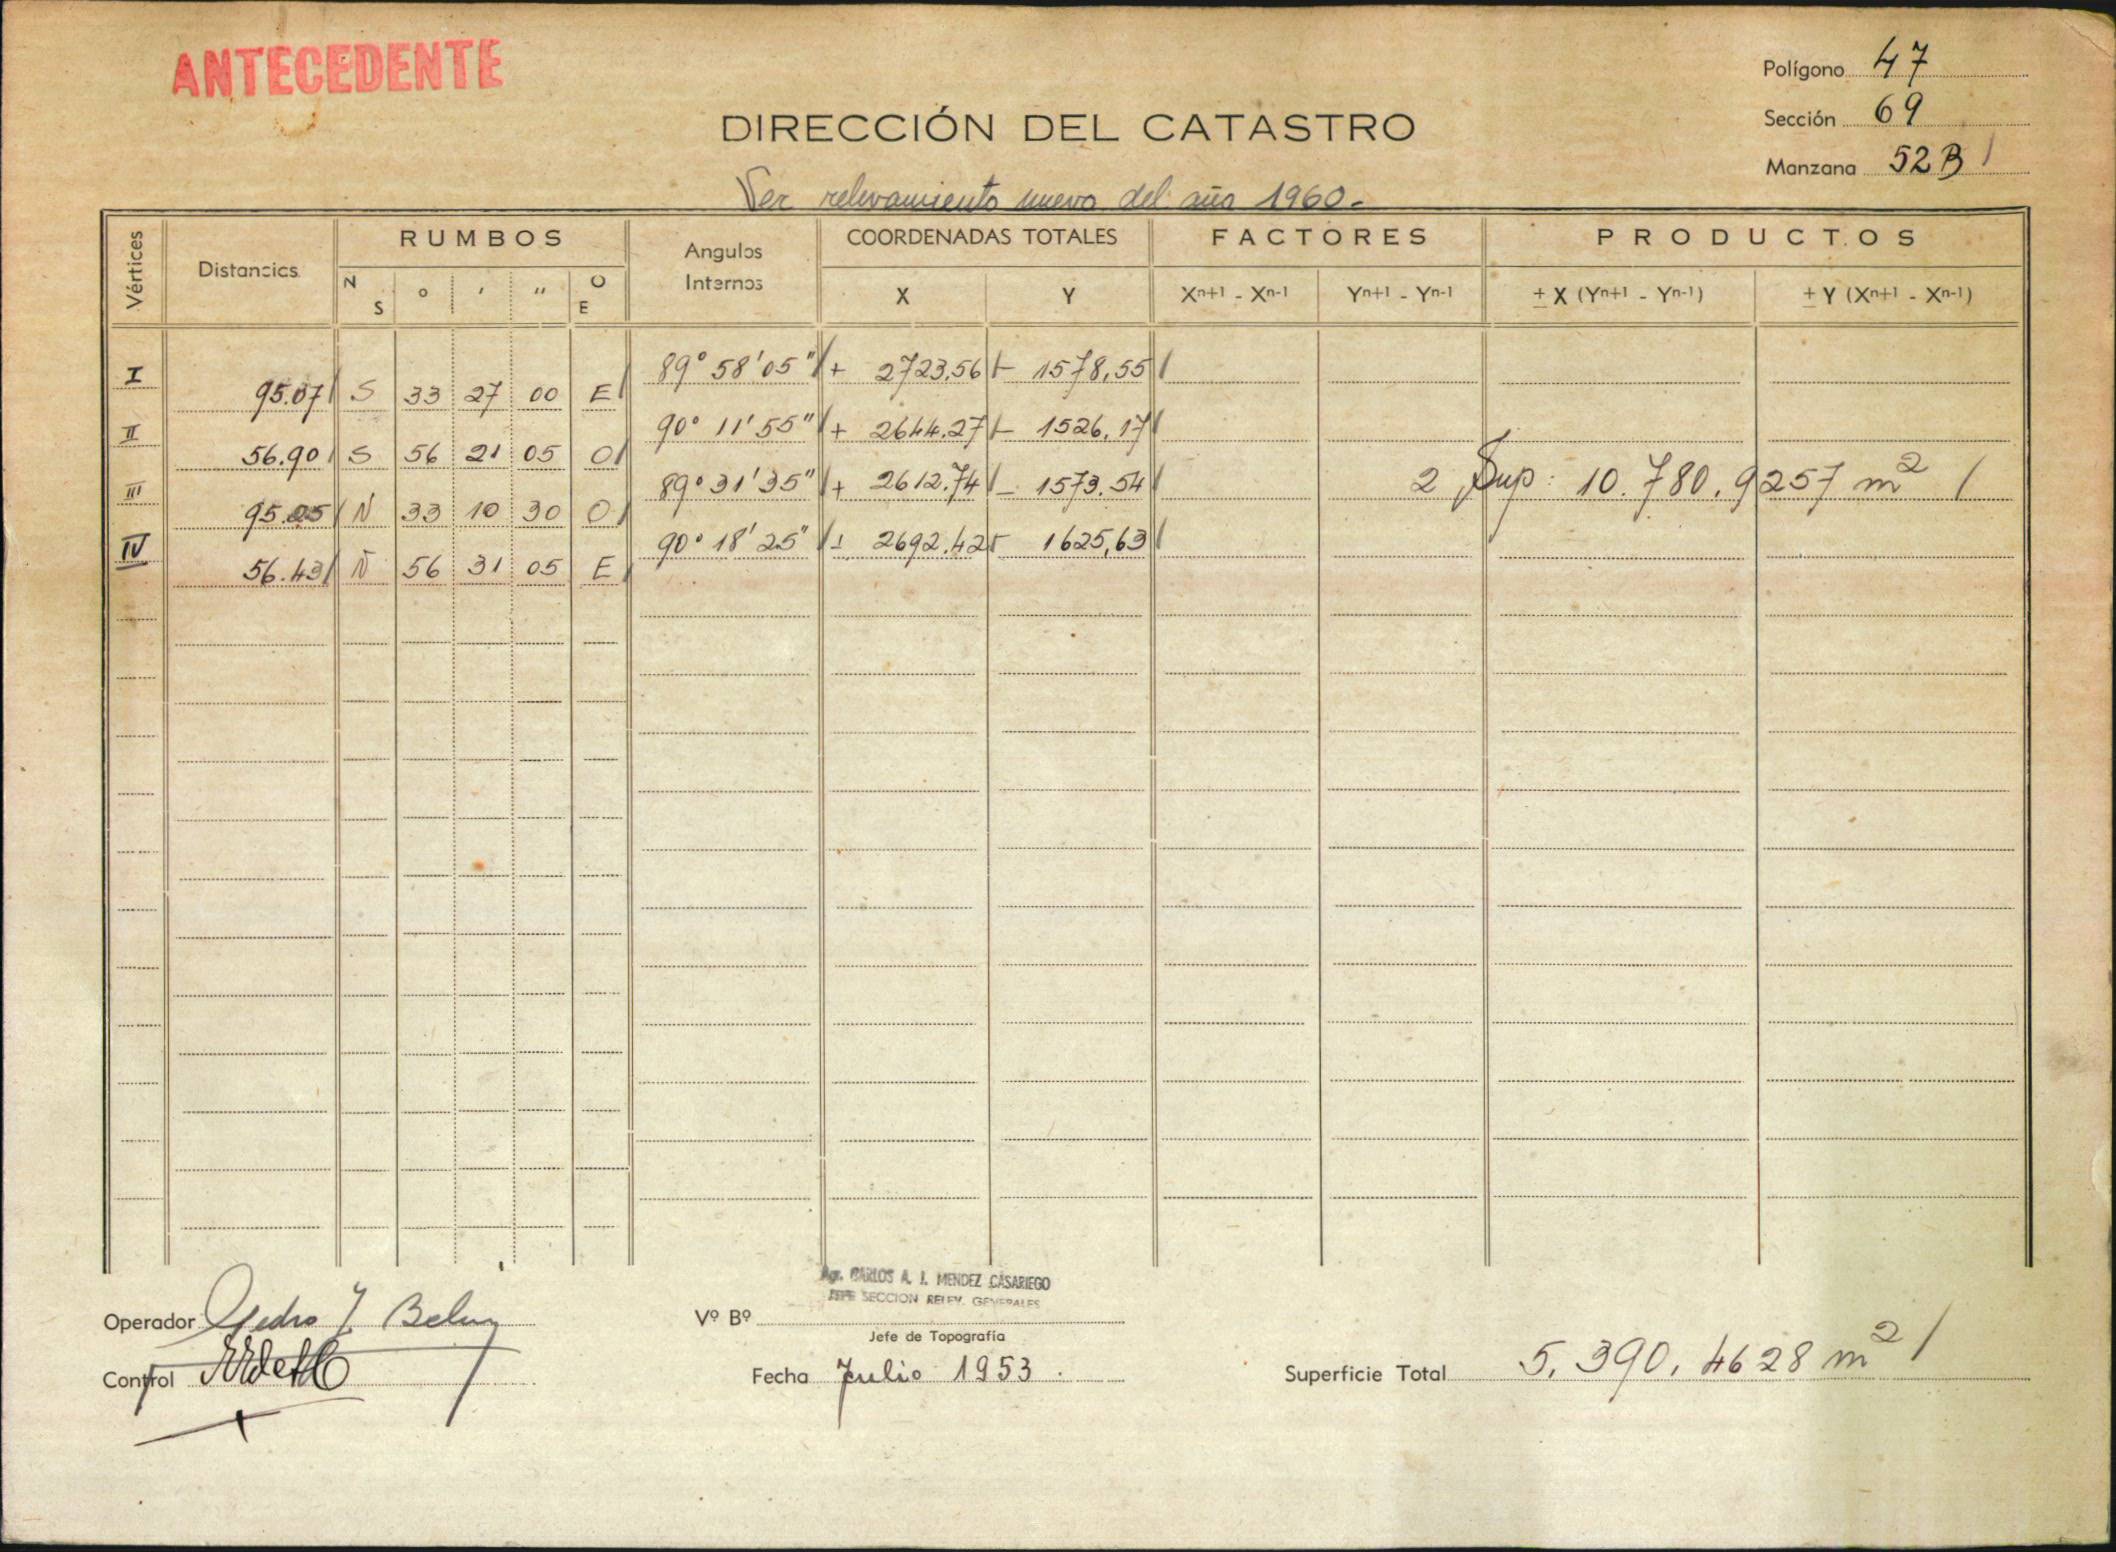 ANTECEDENTE
Polígono 47
Sección 69
Manzana 52B
DIRECCIÓN DEL CATASTRO
Ver relevamiento nuevo del año 1960.-
Vértices Distancias RUMBOS Angulos Internos COORDENADAS TOTALES FACTORES PRODUCTOS
N S ° ' " O E X Y Xn+1 - Xn-1 Yn+1 - Yn-1 ± X (Yn+1 - Yn-1) ± Y (Xn+1 - Xn-1)
I 89° 58' 05" + 2723,56 - 1578,55
95.07 S 33 27 00 E
II 90° 11' 55" + 2644.27 - 1526,17
56.90 S 56 21 05 O
III 89° 31' 35" + 2612.74 - 1573.54
2 Sup: 10.780,9257 m2
95.05 N 33 10 30 O
IV 90° 18' 25" + 2692.42 - 1625,63
56.43 N 56 31 05 E
Agr. CARLOS A. J. MENDEZ CASARIEGO
JEFE SECCION RELEV. GENERALES
Operador Pedro J.
Vº Bº
Jefe de Topografía
Control
Fecha Julio 1953.
Superficie Total 5.390,4628 m2